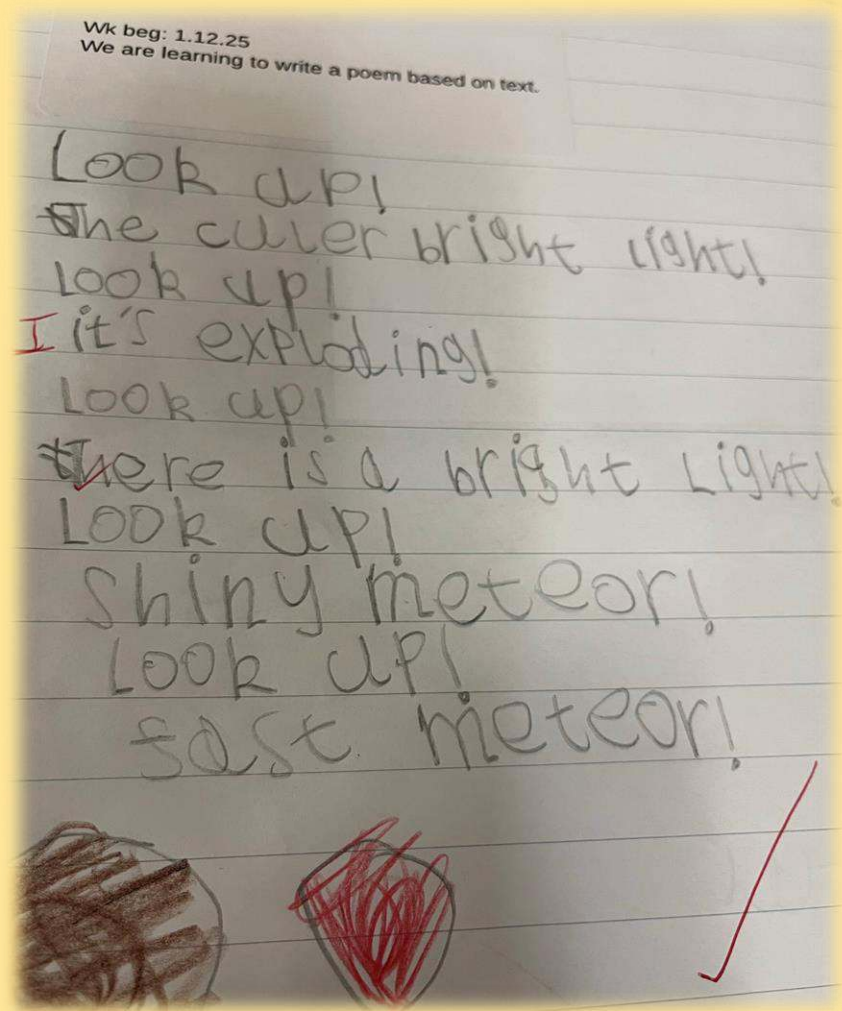 Wk beg: 1.12.25
We are learning to write a poem based on text.
Look up!
The culer bright light!
Look up!
I it's exploding!
Look up!
there is a bright Light!
Look up!
Shiny meteor!
Look up!
fast meteor!